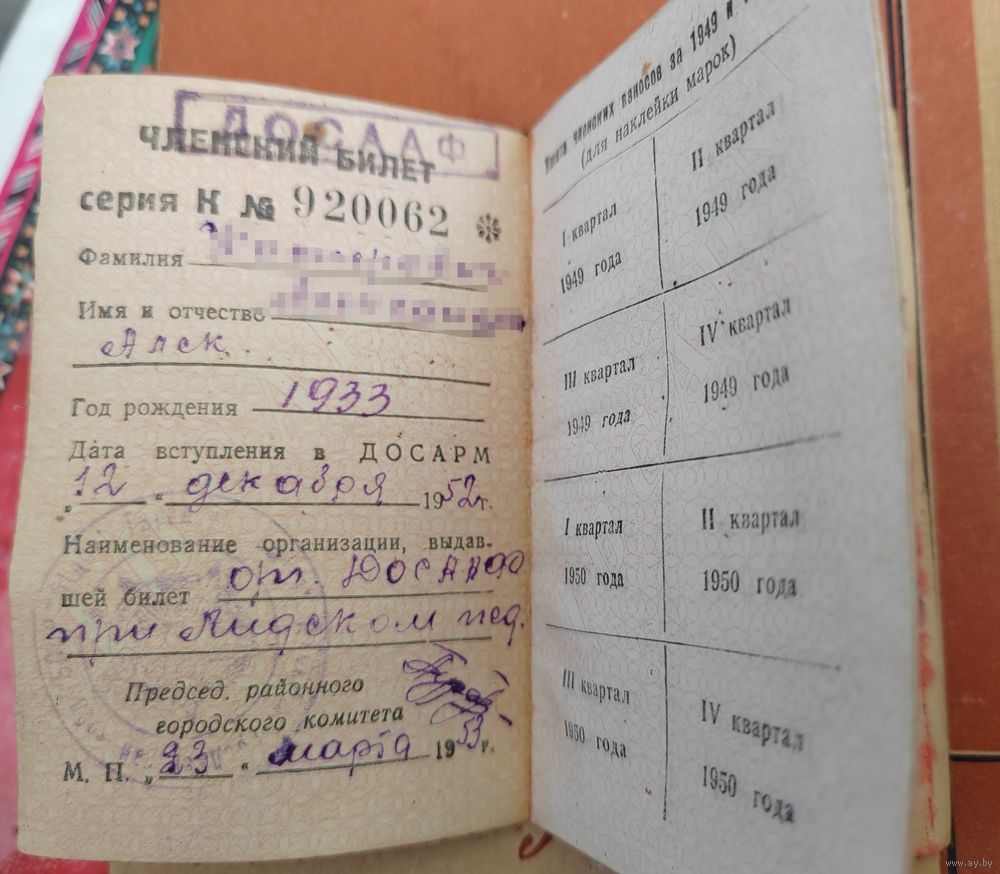 ДОСААФ
ЧЛЕНСКИЙ БИЛЕТ
серия Н № 920062
Фамилия
Имя и отчество
Алек.
Год рождения 1933
Дата вступления в ДОСАРМ
„12" декабря 1952г.
Наименование организации, выдав-
шей билет орг. ДОСААФ
при Лидском пед.
Председ. районного
городского комитета
М. П. „23" марта 1953 г.
членских взносов за 1949 и
(для наклейки марок)
I квартал
1949 года
II квартал
1949 года
III квартал
1949 года
IV квартал
1949 года
I квартал
1950 года
II квартал
1950 года
III квартал
1950 года
IV квартал
1950 года
www.ay.by